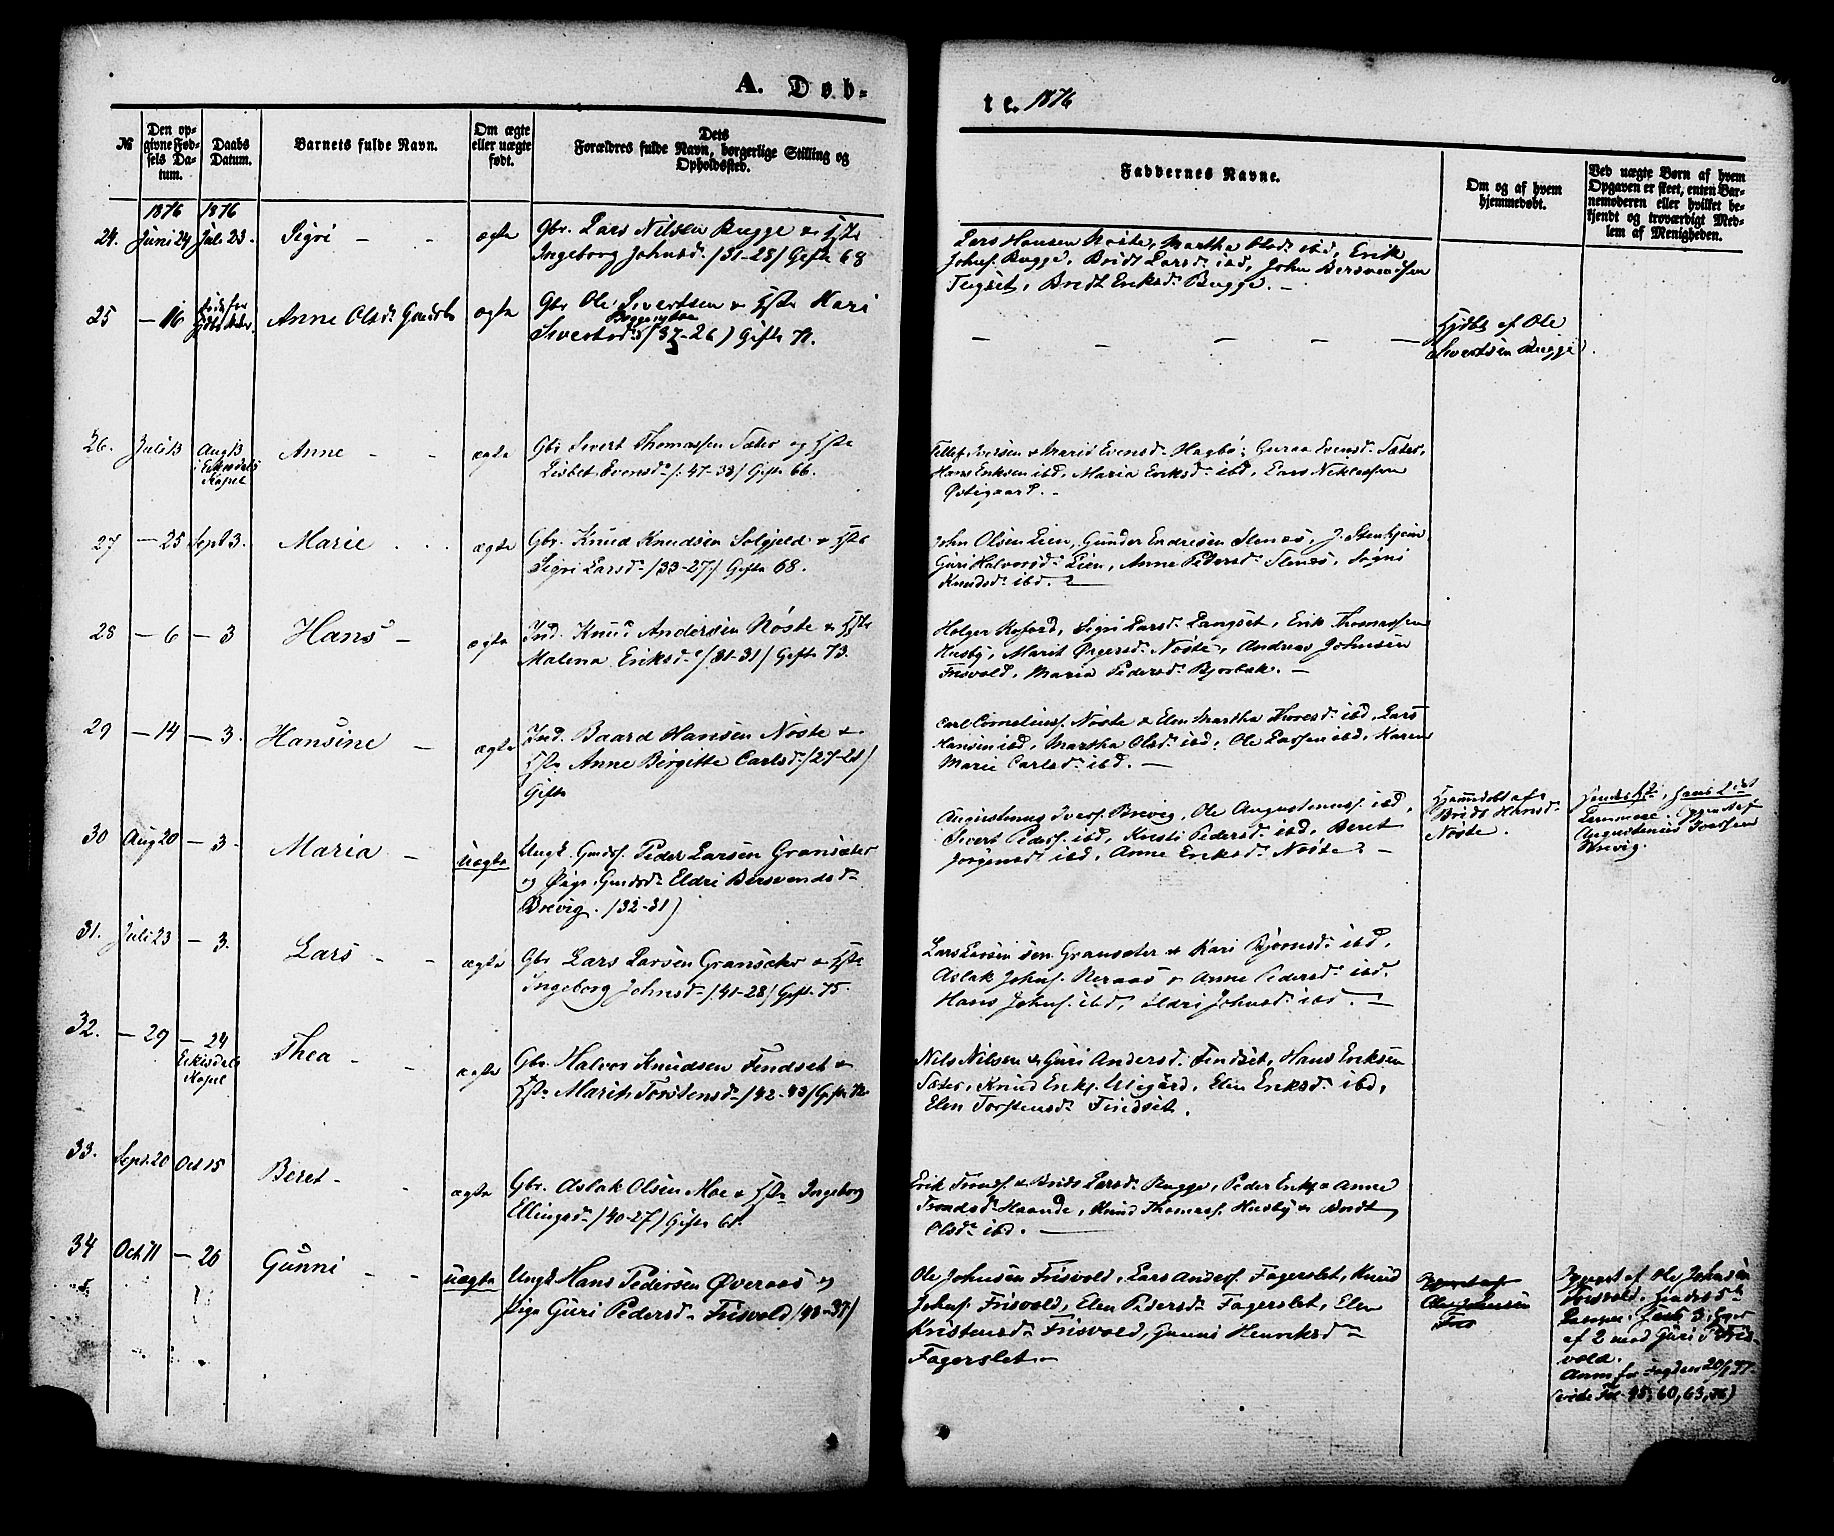 A. Døb-
te. 1876
№
Den op-
givne Fød-
sels Da-
tum.
Daabs
Datum.
Barnets fulde Navn.
Om ægte
eller uægte
født.
Dets
Forældres fulde Navn, borgerlige Stilling og
Opholdssted.
Faddernes Navne.
Om og af hvem
hjemmedøbt.
Ved uægte Børn af hvem
Opgaven er skeet, enten Bar-
nemoderen eller hvilket be-
kjendt og troværdigt Med-
lem af Menigheden.
1876 1876
24. Juni 24 Juli 23. Sigri - - ægte
Gbr. Lars Nilsen Bugge & Hst
Ingeborg Johnsd. (31-28) Gifte 68
Lars Hansen Nøste, Martha Olsd. ibd, Erik
Johnss. Bugge, Bridt Larsd. ibd, John Bersvendsen
Tugset, Bredt Eriksd. Bugge. -
25 - 16 Anne Olsd. ægte
Gbr Ole Sivertsen & Hst Kari
Sivertsd. (37-26) Gifte 71.
- - - - -
Hjdbt af Ole
Sivertsen Bugge
26. Juli 13 Aug 13
i Eikisdals
Kapel
Anne - - ægte
Gbr Sivert Thomassen Sæter og Hst
Lisbet Evensd. (47-38) Gifte 66.
Iversen & Marit Evensd. Hagbø, Guraa Evensd. Sæter,
Hans Eriksen ibd, Maria Eriksd. ibd, Lars
27 - 25 Sept 3. Marie . . . ægte
Gbr. Knud Knudsen Solgjeld & Hst
Sigri Larsd. (33-27) Gifte 68.
John Olsen Lien, Gunder Endresen Stenes, J.
Guri Halvorsd. Lien, Anne Pedersd. Stenes, Sigri
Knudsd. ibd.
28 - 6 - 3 Hans - ægte
Ind. Knud Andersen Nøste & Hst
Malena Eriksd. (31-31) Gifte 73.
Holger Koford, Sigri Larsd. Langset, Erik Thomassen
Husby, Marit Nøste, Andreas Johnsen
Frisvold, Maria Pedersd. Bjorbak. -
29 - 14 - 3. Hansine - ægte
Ind. Baard Hansen Nøste &
Hst Anne Birgitte Carlsd. (27-21)
Gifte
Carl Corneliuss. Nøste & Elen Martha ibd, Lars
Hansen ibd, Martha Olsd. ibd, Ole Larssen ibd, Karen
Marie Carlsd. ibd. -
30 Aug 20 - 3. Maria - uægte
Ungk. Gmds. Peder Larsen Gransæter
og Pige Gmdsd. Eldri Bersvendsd.
Brevig. (32-31)
Augustinus Iverss. Brevig, Ole Augustinuss. ibd,
Sivert Pederss. ibd, Kristi Pedersd. ibd, Beret
Jørgensd. ibd, Anne Eriksd. Nøste. -
Hjemmedøbt af
Bridt Hansd.
Nøste.
Hendes 1ste, hans 2det
Leiermaal. Opgivet af
Augustinus Iverssen
Brevig.
31. Juli 23 - 3. Lars - - ægte
Gbr Lars Larsen Gransæter & Hst
Ingeborg Johnsd. (41-28) Gifte 75.
Lars Larsen sen. Gransæter & Kari Bjørnsd. ibd,
Aslak Johnss. Neraas & Anne Pedersd. ibd.
Hans Johnss. ibd, Eldri Johnsd. ibd. -
32. - 29 - 24
Eikisdals
Kapel
Thea - - ægte
Gbr. Halvor Knudsen Findset &
Hst Marith Torstensd. (42-43) Gifte
Nils Nilsen & Guri Andersd. Findset, Hans Eriksen
Sæter, Knud Eriks. Utigård, Elen Eriksd. ibd,
Elen Torstensd. Findset.
33. Sept. 20 Oct 15 Beret - - ægte
Gbr. Aslak Olsen Moe & Hst Ingeborg
Ellingsd. (40-27) Gifte
Erik Trondss. & Brids Larsd. Bugge, Peder Eriks. & Anne
Trondsd. Haande, Knud Thomass. Husby & Bridt
Olsd. ibd. -
34 Oct 11 - 26 Gunni - - uægte
Ungk Hans Pedersen Øveraas og
Pige Guri Pedersd. Frisvold (48-37)
Ole Johnsen Frisvold, Lars Anderss. Fagerslet, Knud
Johnss. Frisvold, Elen Pedersd. Fagerslet, Elen
Kristensd. Frisvold, Gunni Henriksd.
Fagerslet. -
Opgivet af Ole Johnsen
Frisvold. Hendes 5te
af 2 med Guri P. Fris-
vold.
(vide Fol 45, 60, 63, 76)